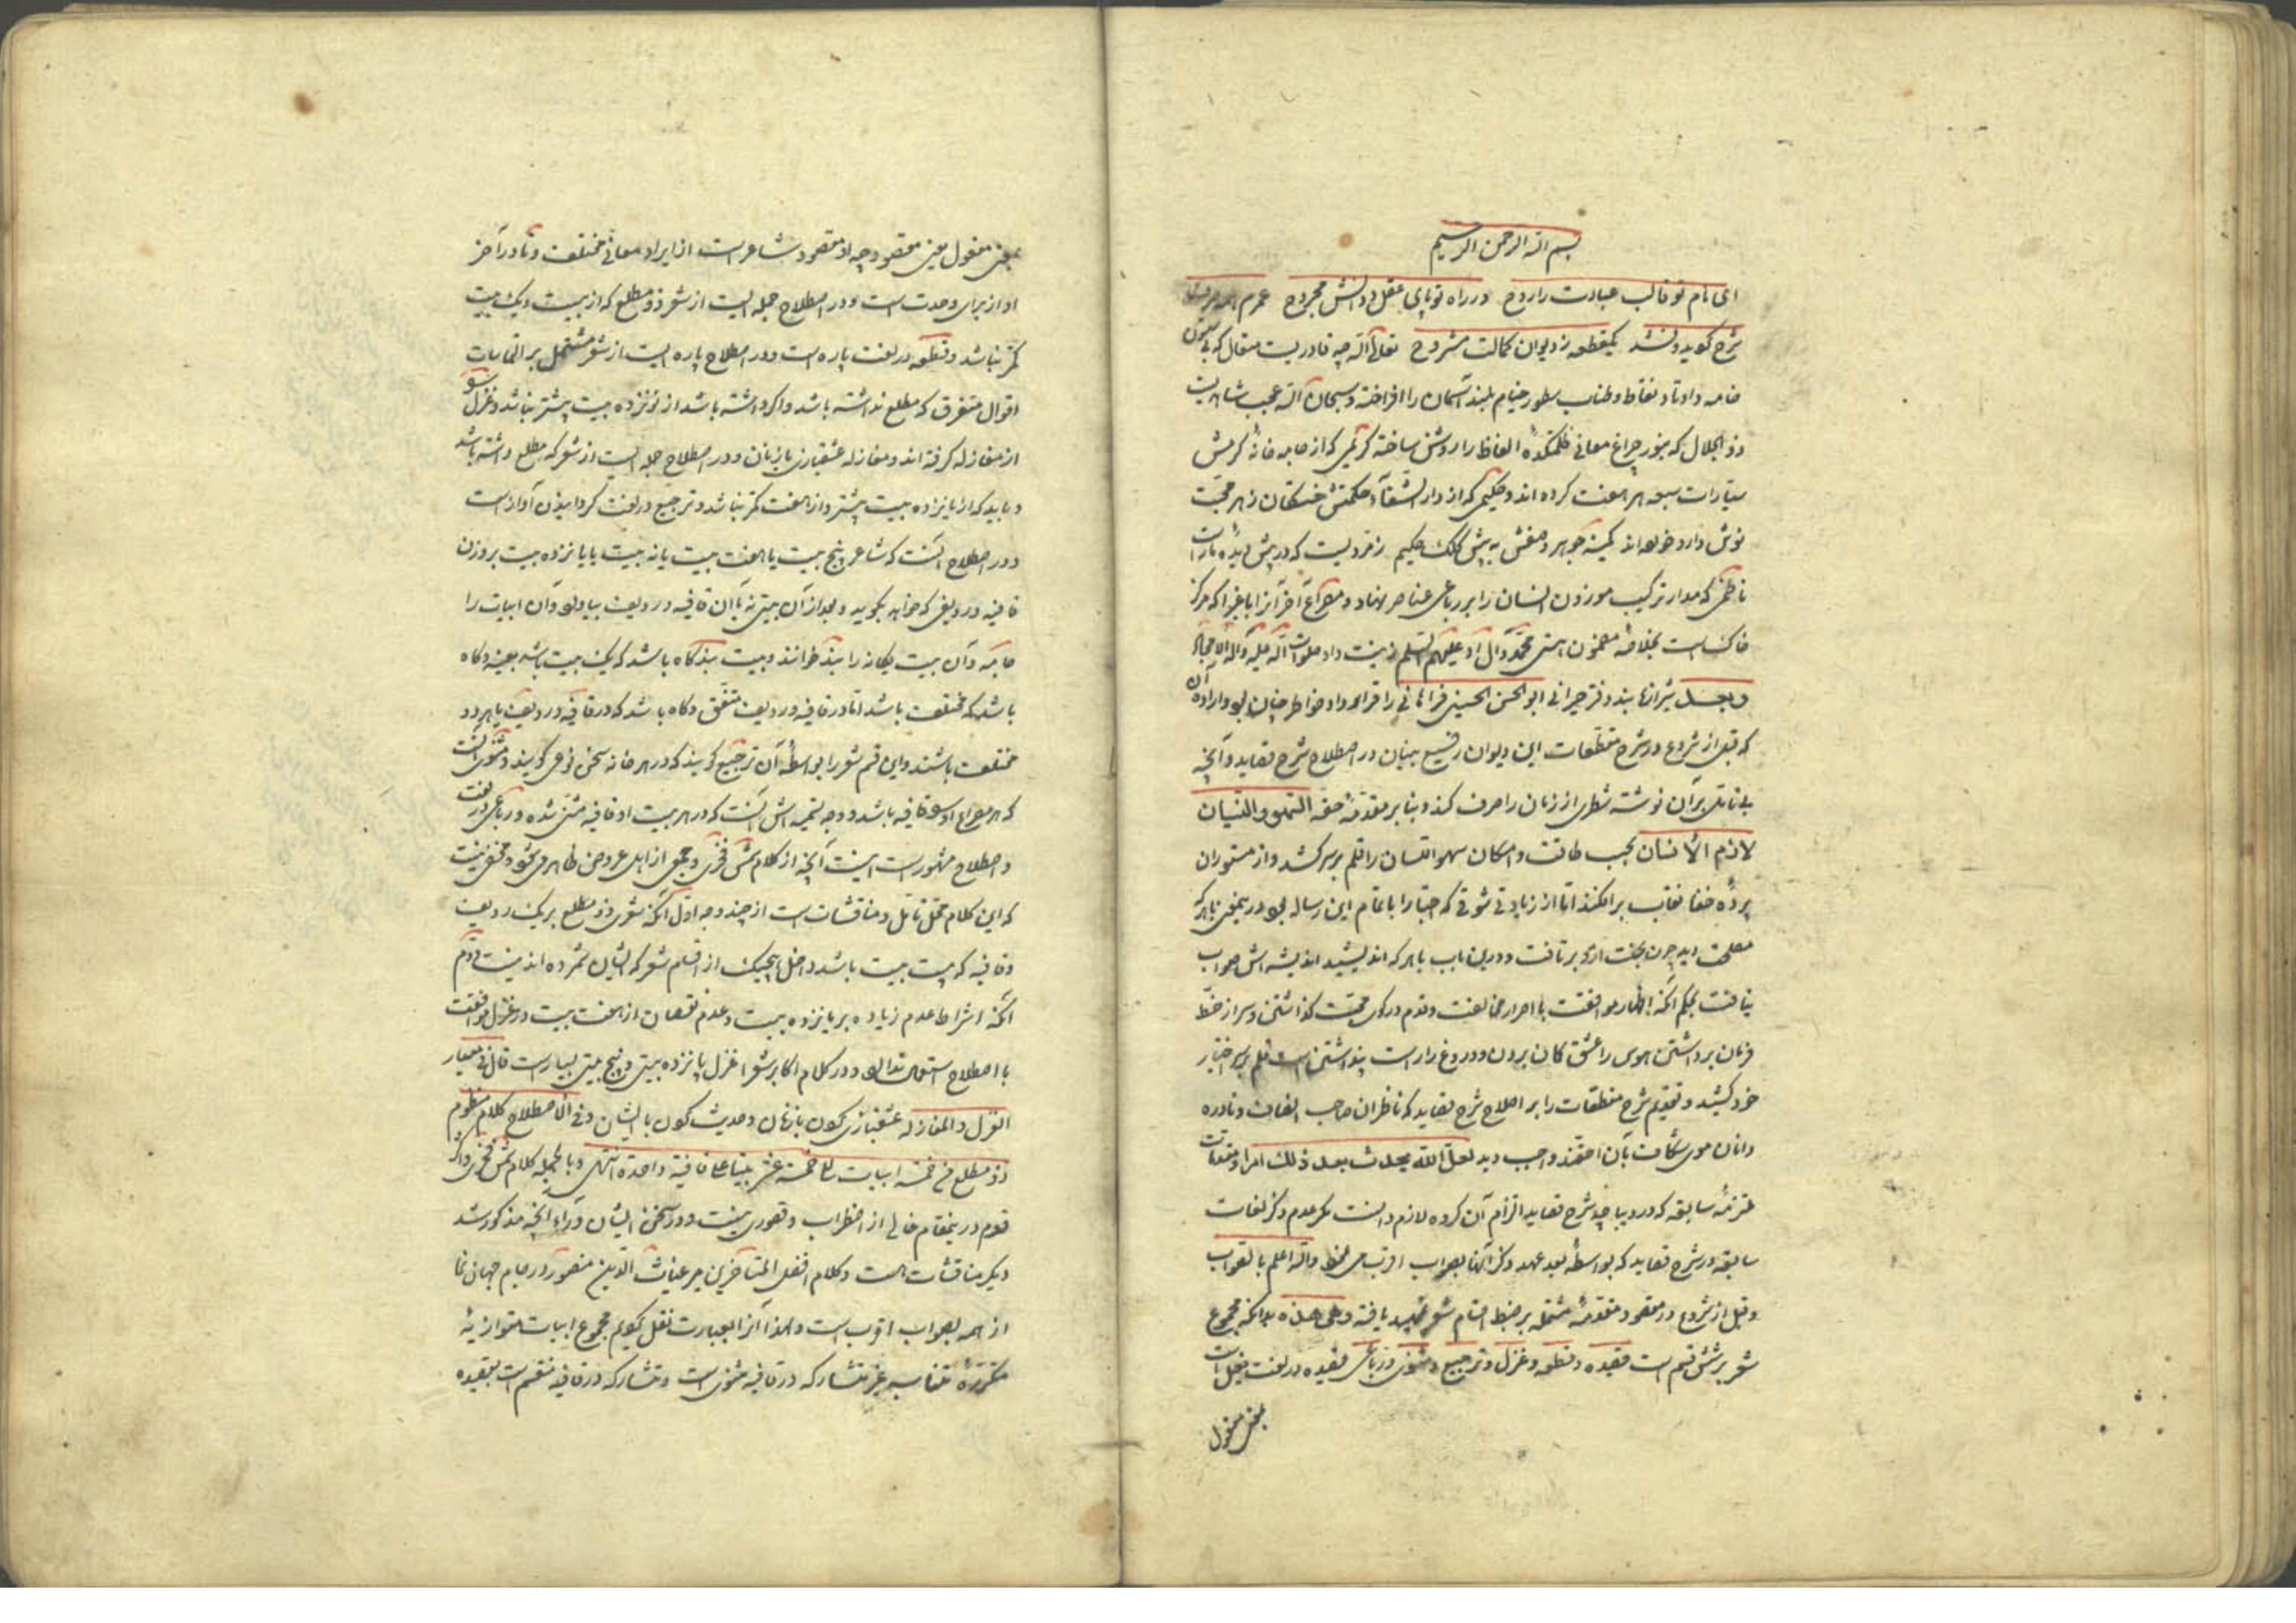 بسم الله الرحمن الرحیم
ای نام تو قالب عبادت را روح در راه تو پای عقل و دانش مجروح عمرم همه
شرح کوید و نشد یکقطعه ز دیوان کمالت مشروح تعالی الله چه قادریست متعال که بی ستون
خامه و اوتاد نقاط و طناب سطور خیام بلند آسمان را افراخته و سبحان الله عجب شاهیست
ذو الجلال که بنور چراغ معانی ظلمتکدهٔ الفاظ را روشن ساخته کریمی که از جامه خانه کرمش
سیارات سبعه هر هفت کرده اند و حکیمی که از دار الشفاء حکمتش خستکان زهر محبت
نوش دارو خورده اند کمینه جوهر وصفش به پیش کلک حکیم زمردیست که در پیش دیده مار است
ناظمی که مدار ترکیب موزون انسان را بر رباعی عناصر نهاد و مصراع آخر آنرا با غبرا که مرکز
خاکست بخلافه مضمون هستی محمد و آل او علیهم السلم زینت داد صلوات الله علیه و آله
و بعد شیرازه بند دفتر حیرانی ابو الحسن الحسینی فراهانی را قرارداد خاطر چنان بود و اراده آن
که قبل از شروع در شرح مقطعات این دیوان رفیع بنیان در اصطلاح شرح قصاید و آنچه
بی تامل بر آن نوشته شطری از زمان را صرف کند و بنا بر مقدمهٔ حقه السهو و النسیان
لازم الانسان بحسب طاقت و امکان سهو القلسان را قلم بر سر کشد و از مستوران
پرده خفا نقاب برافکند اما از زیادتی شوقی که احبا را باتمام این رساله بود درینمعنی با هر که
مصلحت دید چون بخت از وی برتافت و درین باب با هر که اندیشید اندیشه اش صواب
نیافت بحکم آنکه اظهار موافقت با اصرار مخالفت و قدم در کوی محبت کذاشتن و سر از خط
فرمان برداشتن هوس را عشق کمان بردن و دروغ را راست پنداشتن است قلم بر سر اختیار
خود کشید و تقدیم شرح مقطعات را بر اصلاح شرح قصاید که ناظران صاحب انصاف و نادره
دانان موی شکاف بآن احقند واجب دید لعل الله یحدث بعد ذلک امرا و مقدمات
ملتزمهٔ سابقه که در دیباچه شرح قصاید التزام آن کرده لازم دانست مکر عدم ذکر لغات
سابقه در شرح قصاید که بواسطهٔ بعد عهد ذکر آنها بصواب اقرب می نمود والله اعلم بالصواب
و قبل از شروع در مقصود مقدمهٔ مشتمله بر ضبط اقسام شعر تمهید یافته و هی هذه بدانکه مجموع
شعر بر شش قسم است قصیده و قطعه و غزل و ترجیع و مثنوی و رباعی قصیده در لغت فعیل است
بمعنی مفعول
بمعنی مفعول یعنی مقصود چه او مقصود شاعر است از ایراد معانی مختلف و تا در آخر
او از برای وحدت است و در اصطلاح جمله ایست از شعر ذو مطلع که از بیست و یک بیت
کمتر نباشد و قطعه در لغت پاره است و در اصطلاح پاره ایست از شعر مشتمل بر
اقوال متفرق که مطلع نداشته باشد و اکر داشته باشد از نوزده بیت بیشتر نباشد و غزل
از مغازله کرفته اند و مغازله عشقبازی با زنان و در اصطلاح جمله ایست از شعر که مطلع داشته باشد
و باید که از پانزده بیت بیشتر و از هفت کمتر نباشد و ترجیع در لغت کردانیدن آواز است
و در اصطلاح آنست که شاعر پنج بیت یا هفت بیت یا نه بیت یا پانزده بیت بر وزن
قافیه و ردیفی که خواهد بکوید و بعد از آن بیتی نه بآن قافیه و ردیف بیاورد و آن ابیات را
خانه و آن بیت یکانه را بند خوانند و بیت بند کاه باشد که یک بیت باشد بعینه و کاه
باشد که مختلف باشد اما در قافیه و ردیف متفق و کاه باشد که در قافیه و ردیف یا هر دو
مختلف باشند و این قسم شعر را بواسطهٔ آن ترجیع کویند که در هر خانه سخن نوعی کویند و مثنوی آنست
که هر مصراع او را قافیه باشد و وجه تسمیه اش آنست که در هر بیت او قافیه مثنی شده و رباعی در لغت
و اصطلاح مشهور است اینست آنچه از کلام شمس فخری و جمعی از اهل عروض ظاهر می شود و مخفی نیست
که این کلام محل تامل و مناقشات است از چند وجه اول آنکه شعری ذو مطلع بر یک ردیف
و قافیه که بیست بیت باشد داخل هیچیک از اقسام شعر که ایشان شمرده اند نیست دوم
آنکه اشتراط عدم زیاده بر پانزده بیت و عدم نقصان از هفت بیت در غزل موافقت
با اصطلاح استعمال ندارد و در کلام اکابر شعرا غزل پانزده بیتی و پنج بیتی بسیار است قال فی معیار
الغزل و المغازله عشقبازی کردن با زنان و حدیث کردن با ایشان و فی الاصطلاح کلام منظوم
ذو مطلع من خمسة ابیات الی خمسة عشر بیتا علی قافیة واحدة انتهی و بالجمله کلام شمس فخری و اکثر
قوم درینمقام خالی از اضطراب و قصوری نیست و در سخن ایشان وراء آنچه مذکور شد
دیکر مناقشات هست و کلام افضل المتاخرین میر غیاث الدین منصور در جام جهان نما
از همه بصواب اقرب است و لهذا آنرا بعبارت نقل کویم مجموع ابیات متوازنه
متکررهٔ متناسبه غیر متشارکه در قافیه مثنوی است و متشارکه در قافیه منقسم است بقصیده